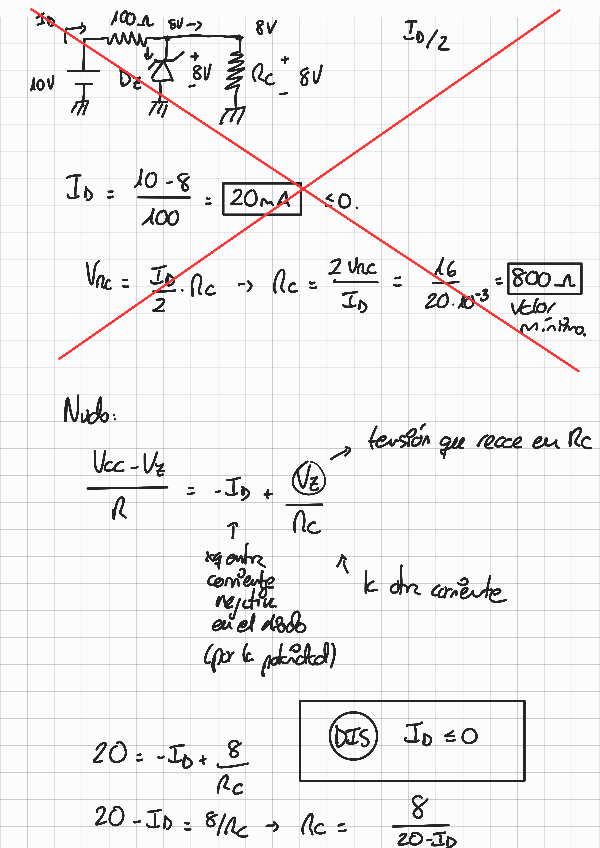 I_D 100Ω 8V→ 8V I_D/2
10V D_Z + - 8V R_C + - 8V
I_D = (10-8)/100 = 20mA ≤0.
V_RC = I_D/2 · R_C → R_C = 2V_RC/I_D = 16/(20·10^-3) = 800Ω
valor
mínimo.
Nudo:
tensión que recae en R_C
(V_CC - V_Z)/R = -I_D + V_Z/R_C
xq entra
corriente
negativa
en el diodo
(por la polaridad)
la otra corriente
DIS I_D ≤ 0
20 = -I_D + 8/R_C
20 - I_D = 8/R_C → R_C = 8/(20-I_D)